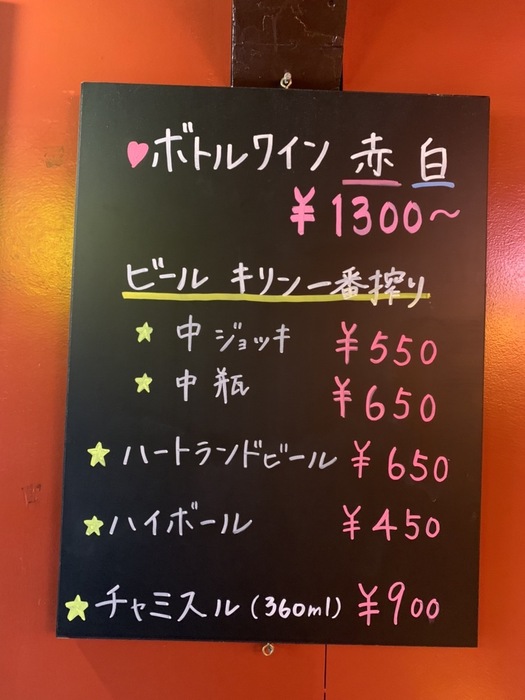 ♥ボトルワイン 赤 白
¥1300〜
ビール キリン一番搾り
★中ジョッキ ¥550
★中瓶 ¥650
★ハートランドビール ¥650
★ハイボール ¥450
★チャミスル(360ml) ¥900